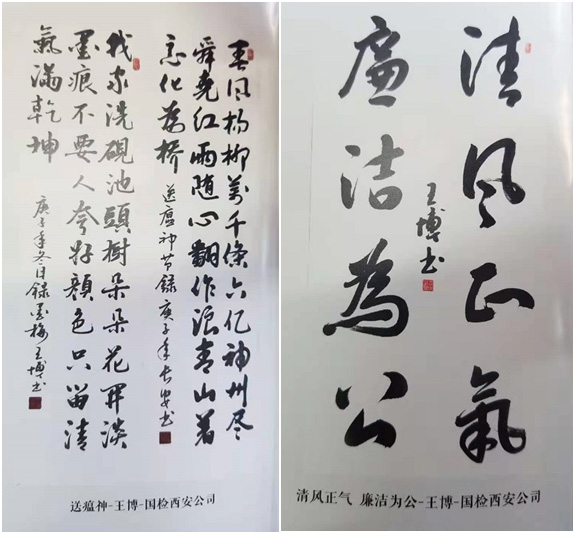 春风杨柳萬千條六亿神州尽
舜尧红雨随心翻作浪青山着
意化为桥 送瘟神节录 庚子年长安书
我家洗硯池頭樹朵朵花開淡
墨痕不要人夸好顏色只留清
氣滿乾坤 庚子年冬日錄墨梅王博书
送瘟神-王博-国检西安公司
清风正氣
廉洁為公
王博书
清风正气 廉洁为公-王博-国检西安公司